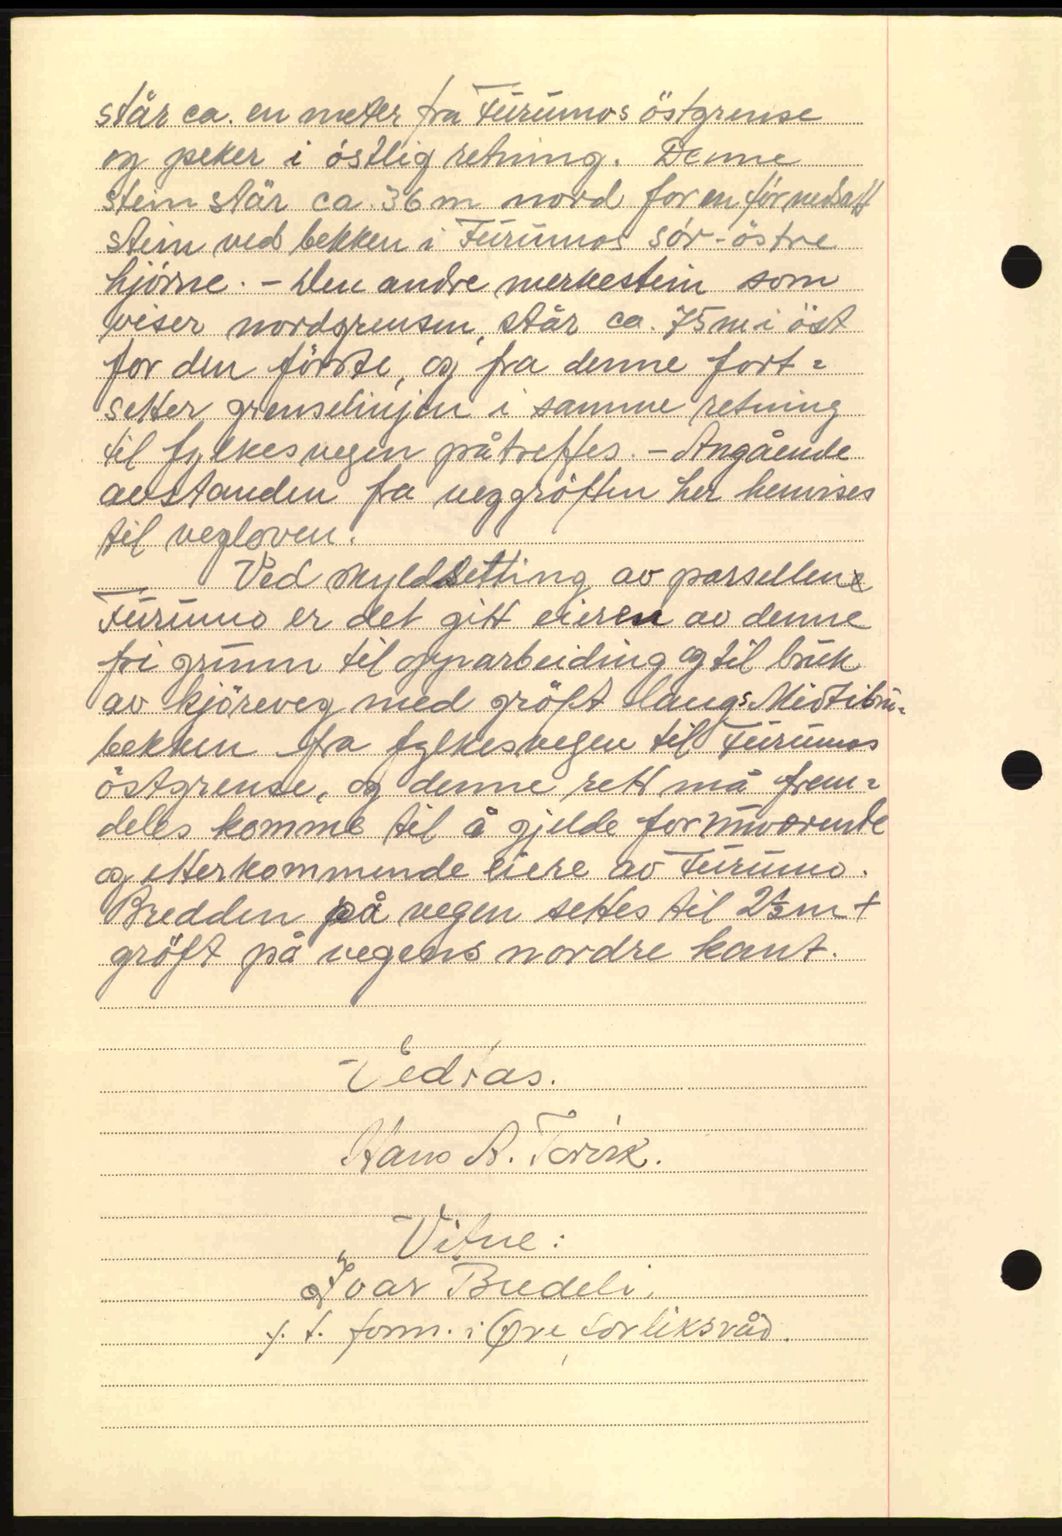 står ca. en meter fra Furumos östgrense
og peker i östlig retning. Denne
stein står ca. 36 m nord for en för nedsatt
stein ved bekken i Furumos sör-östre
hjörne. – Den andre merkestein som
viser nordgrensen, står ca. 75 m i öst
for den förste, og fra denne fort=
setter grenselinjen i samme retning
til fylkesvegen påtreffes. – Angående
avstanden fra veggröften her henvises
til vegloven.
Ved skyldsetting av parsellen
Furumo er det gitt eieren av denne
fri grunn til opparbeiding og til bruk
av kjöreveg med gröft langs Midtibu=
bekken fra fylkesvegen til Furumos
östgrense, og denne rett må frem=
deles komme til å gjelde for nuværende
og etterkommende eiere av Furumo.
Bredden på vegen settes til 2½ m +
gröft på vegens nordre kant.
Vedtas.
Hans A. Torvik.
Vitne:
Ivar Bredeli,
f. t. form. i Øre forliksråd.